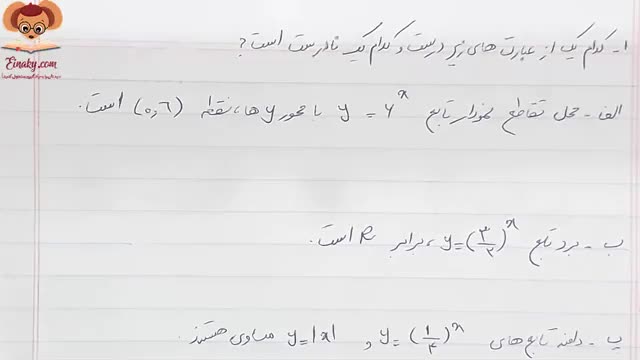 Einaky.com
۱- کدام یک از عبارت های زیر درست و کدام یک نادرست است؟
الف - محل تقاطع نمودار تابع y = 6^x با محور y ها، نقطه (۰,۶) است.
ب - برد تابع y = (۳/۲)^x، برابر R است.
پ - دامنه تابع های y = (۱/۴)^x و y = |x| مساوی هستند.